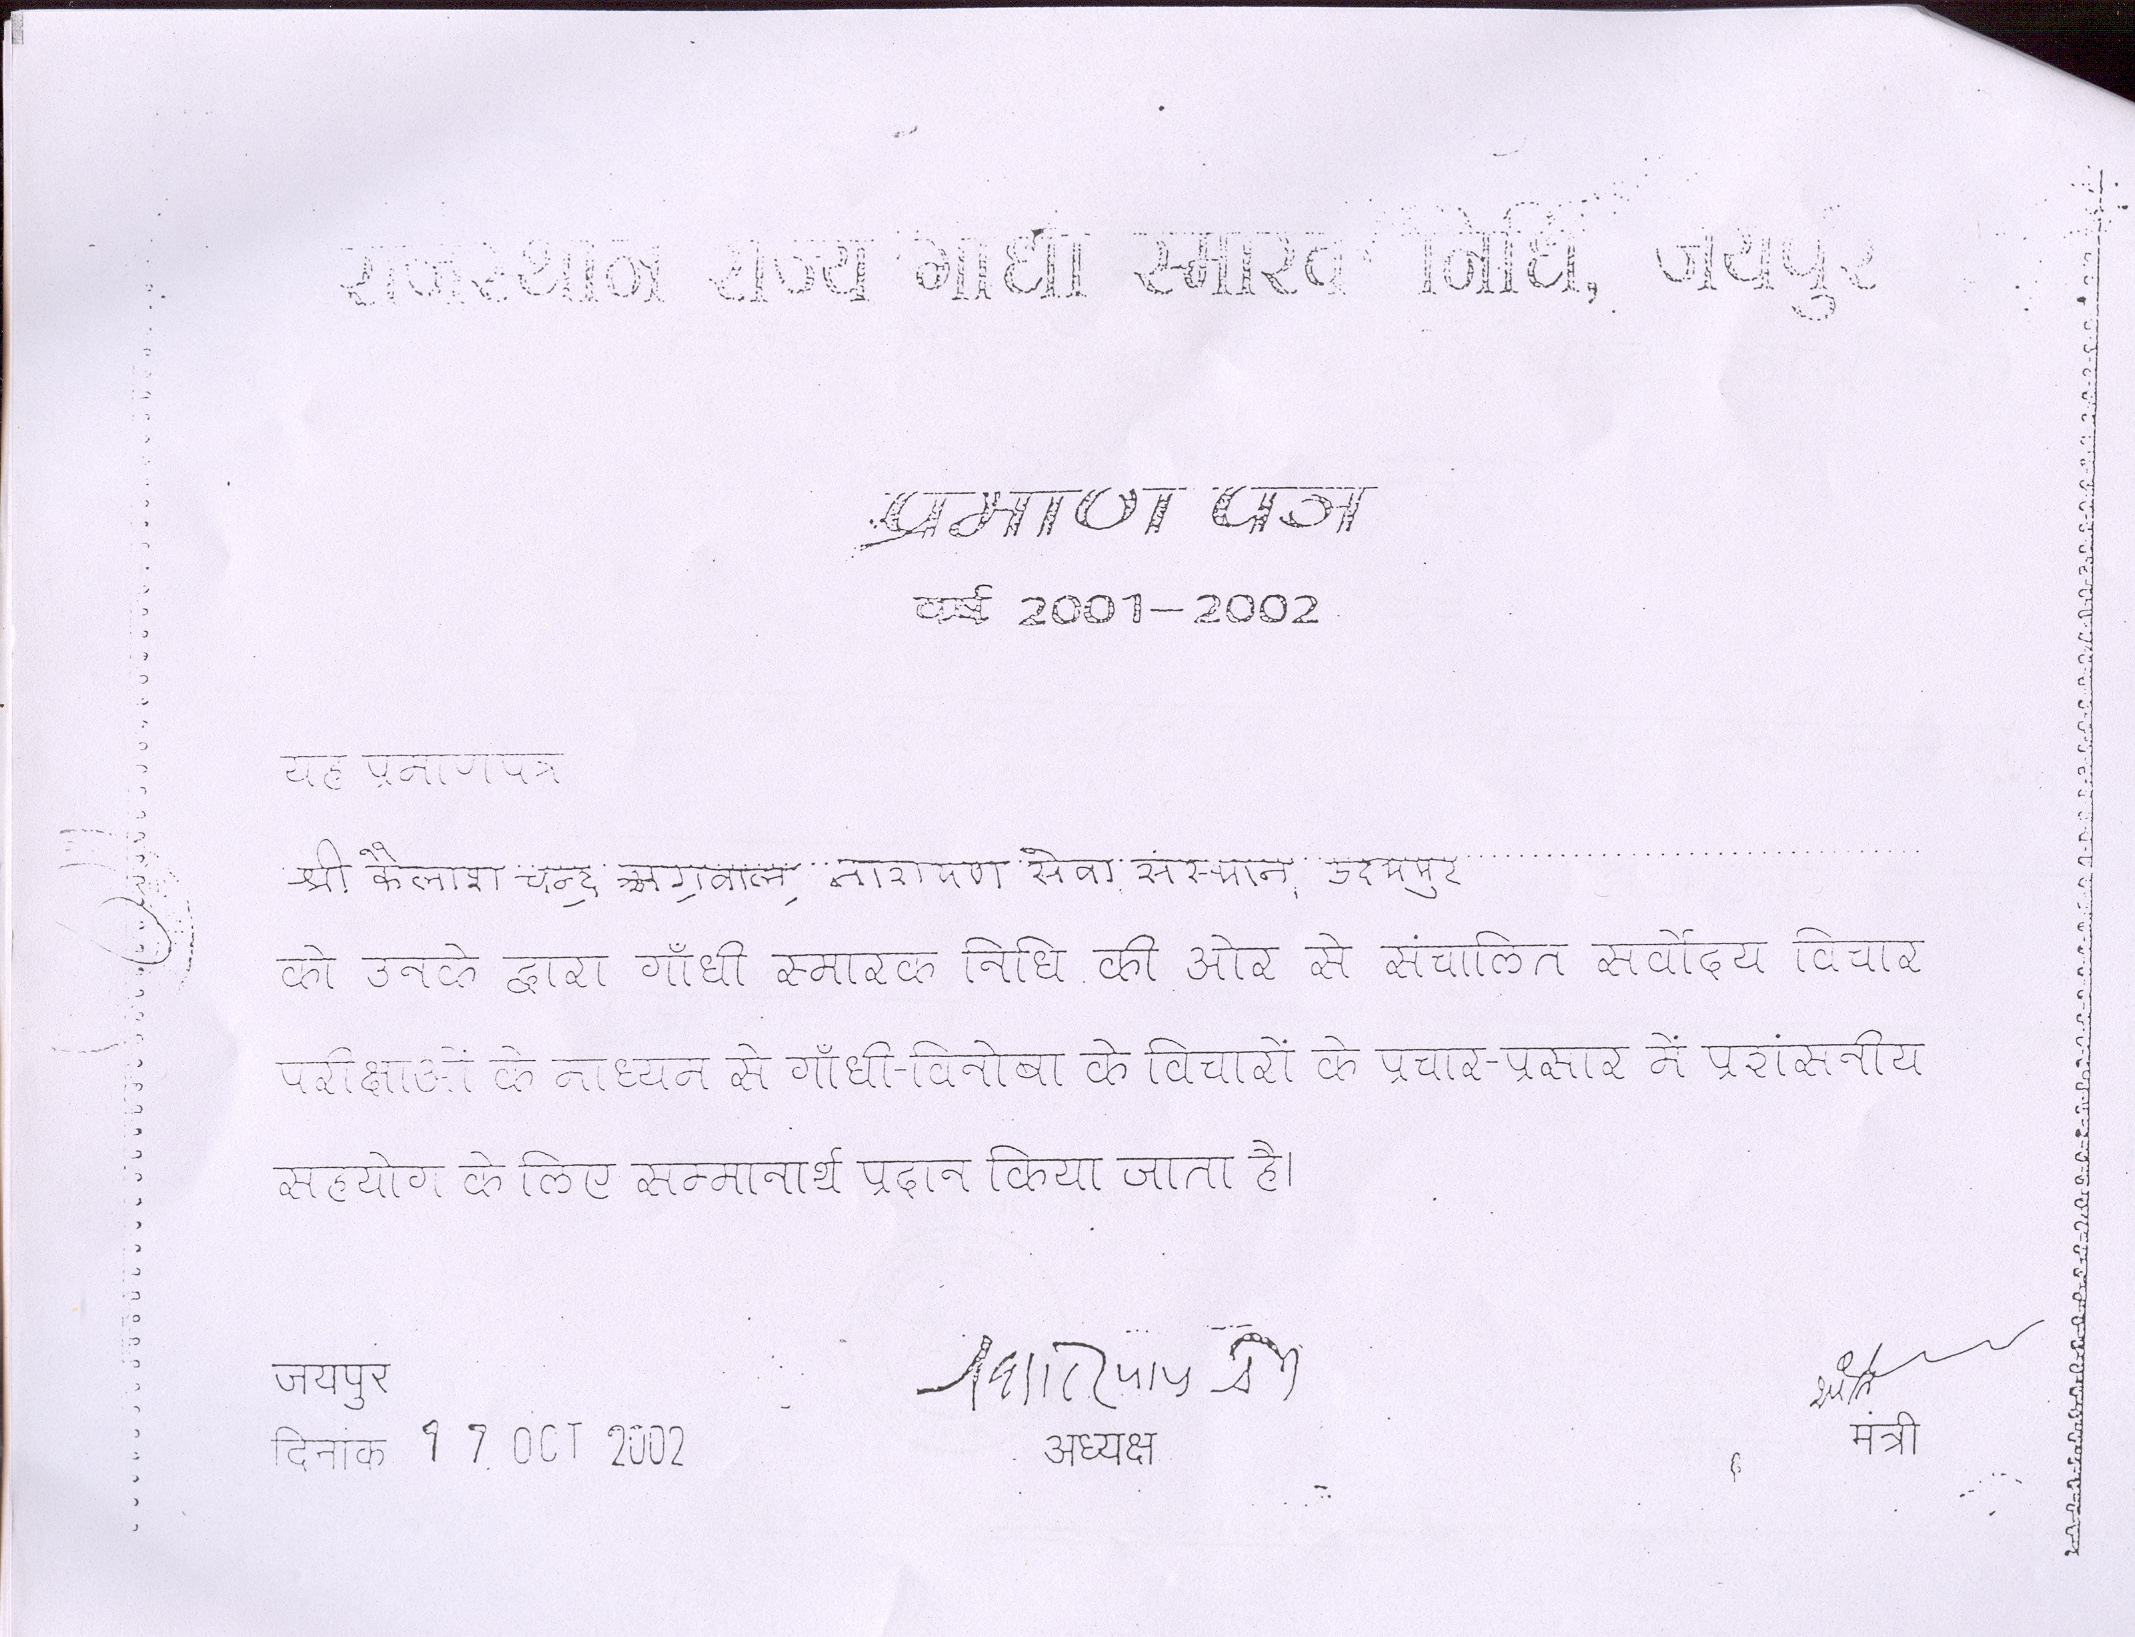 राजस्थान राज्य गांधी स्मारक निधि, जयपुर
प्रमाण पत्र
वर्ष 2001-2002
यह प्रमाणपत्र
श्री कैलाश चन्द्र अग्रवाल, नारायण सेवा संस्थान, उदयपुर
को उनके द्वारा गाँधी स्मारक निधि की ओर से संचालित सर्वोदय विचार
परीक्षाओं के माध्यम से गाँधी-विनोबा के विचारों के प्रचार-प्रसार में प्रशंसनीय
सहयोग के लिए सम्मानार्थ प्रदान किया जाता है।
जयपुर
दिनांक 17 OCT 2002
अध्यक्ष
मंत्री